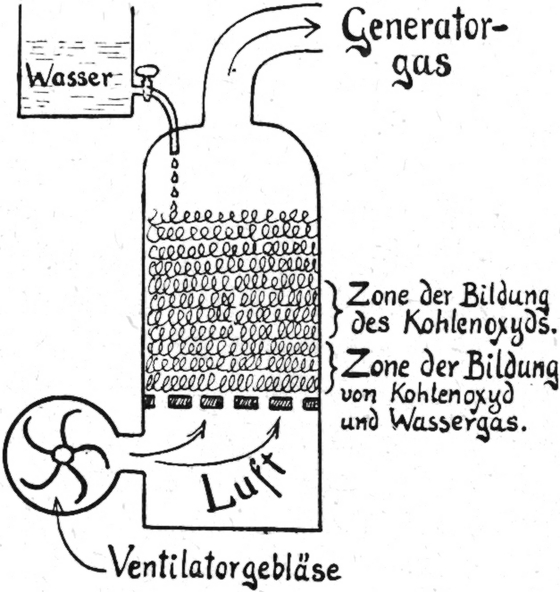 Generator-
gas
Wasser
Zone der Bildung
des Kohlenoxyds.
Zone der Bildung
von Kohlenoxyd
und Wassergas.
Luft
Ventilatorgebläse